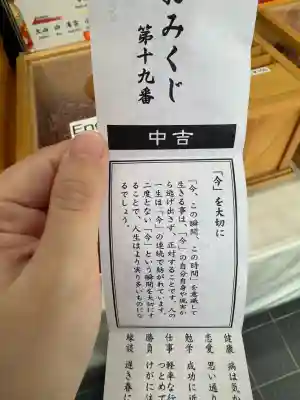 おみくじ
第十九番
中吉
「今」を大切に
「今、この瞬間、この時間」を意識して
生きる事は、「今」の自分自身や現実か
ら逃げ出さず、正対することです。人の
一生は「今」の連続で紡がれています。
二度とない「今」という瞬間を大切にす
ることで、人生はより実り多いものにな
るでしょう。
健康 病は気か
恋愛 思い通り
勉学 成功に近
仕事 軽率な行
つとめて
勝負 けがには
縁談 過ぎ春に